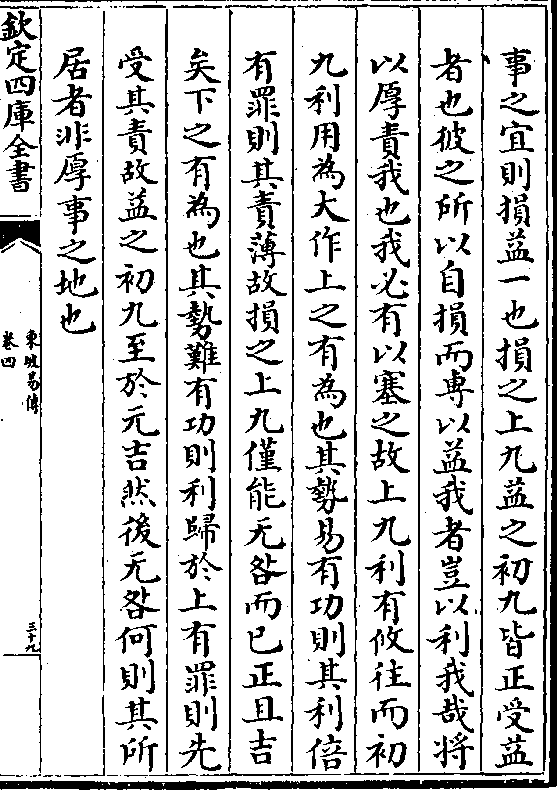 事之宜則損益一也損之上九益之初九皆正受益
者也彼之所以自損而專以益我者豈以利我哉將
以厚責我也我必有以塞之故上九利有攸往而初
九利用為大作上之有為也其勢易有功則其利倍
有罪則其責薄故損之上九僅能无咎而已正且吉
矣下之有為也其勢難有功則利歸於上有罪則先
受其責故益之初九至於元吉然後无咎何則其所
居者非厚事之地也
欽定四庫全書
東坡易傳
卷四
三十九